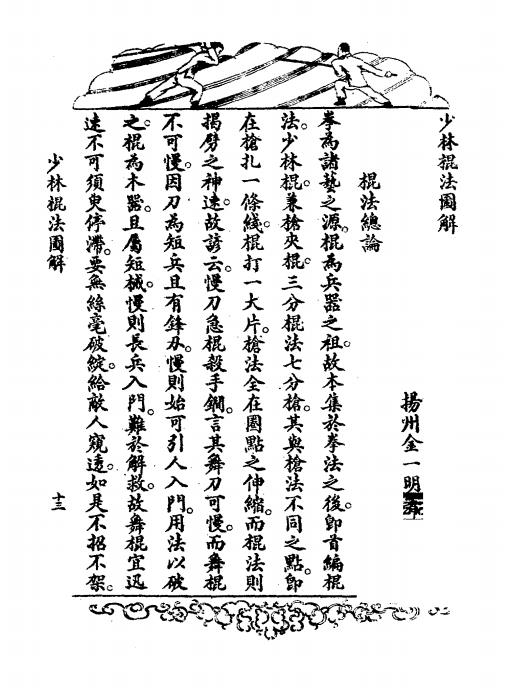 少林棍法圖解
揚州金一明
棍法總論
拳為諸藝之源。棍為兵器之祖。故本集於拳法之後。卽首編棍
法。少林棍。兼槍夾棍。三分棍法七分槍。其與槍法不同之點。卽
在槍扎一條綫。棍打一大片。槍法全在圈點之伸縮。而棍法則
揭劈之神速。故諺云。慢刀急棍殺手鐧。言其舞刀可慢。而舞棍
不可慢。因刀為短兵且有鋒刃。慢則始可引人入門。用法以破
之。棍為木器。且屬短械。慢則長兵入門。難於解救。故舞棍宜迅
速不可須臾停滯。要無絲毫破綻。給敵人窺透。如是不招不架。
少林棍法圖解
十三